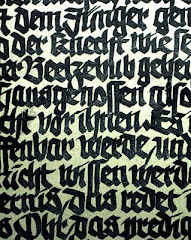 t dem Jünger gen
d der Knecht wie se
er Beelzebub geheï
ausgenossen also
cht vor ihnen. Es
ffenbar werde, und
nicht wissen werde
ernis, das redet
s Ohr, das predig